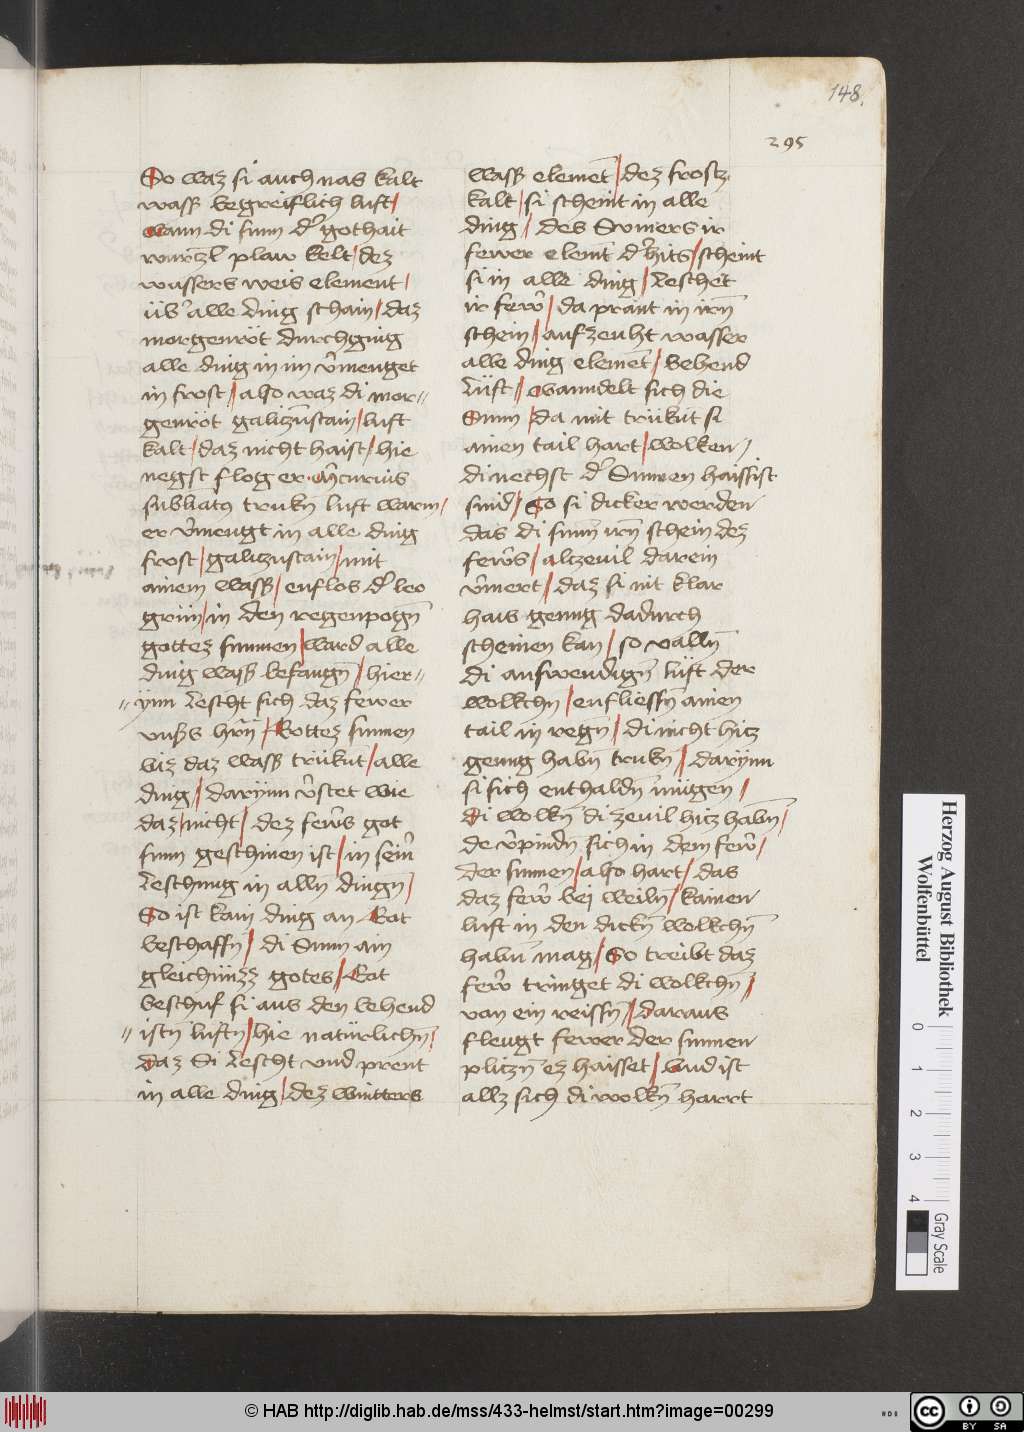 148.
295
So waz si auch nas kalt
wasß begreiflich luft /
wann di sunn dˀ gothait
wurczl plaw kelt / dez
wassers weis element /
übˀ alle ding schain / daz
morgenröt durchging
alle ding in im vˀmenget
in frost // also waz di mor//
genröt galiczn̄stain / luft
kalt / daz nicht haist / hie
negst flog er · Mˀcurius
sublatꝰ trukn̄ luft warm /
er vˀmengt in alle ding
frost / galiczustain / mit
ainem wasß / enflos dˀ leo
grün / in den regenpogn̄
gottez sunnen / ward alle
ding wasß befangn̄ / hier//
//ÿnn lescht sich daz fewer
vnsˀs hˀrn̄ / Gottez sunnen
biz daz wasß trüknt / alle
ding // darÿnn vˀstet wie
daz / nicht / dez fewˀs got
sunn geschinen ist / in seinˀ
leschung in alln̄ dingn̄ /
So ist kain ding an Got
beschaffn̄ / di Sunn ain
gleichnüzz gotes // Got
beschuf si aus den behend
//istn̄ luftn̄ / hie natürlichn̄ /
Daz Si lescht vnd prent
in alle ding / dez wintters
wasß elemēt / dez frostz
kalt / si scheint in alle
ding // des Sumers ir
fewer elemt̄ dˀ hits / scheint
si in alle ding / leschet
ir fewˀ / da prānt in irn̄
schein // aufzeuht wasser
alle ding elemēt / behend
lüft // Wanndelt sich die
Sunn / da mit trüknt si
ainen tail hart / wolken /
di nechst dˀ Sunnen haissist
sind / So si dicker werden
das di sunn̄ irn̄ schein dez
fewˀs / alzeuil darein
vˀmert // daz si nit klar
hats genug dadurch
scheinen kan / so valln̄
di auswendign̄ lüft der
wolkchn / enfliessn̄ ainen
tail in regn̄ / di nicht hicz
genug habn̄ trukn̄ // darÿnn
si sich enthaldn̄ mügen /
Di wolkn̄ di zeuil hicz habn̄ /
de vˀpindn̄ sich in dem fewˀ /
der sunnen / also hart / das
daz fewˀ bei weiln̄ / kainen
luft in den dickn̄ wolkchn̄
habn̄ mag / So treibt daz
fewˀ tringet di wolkchn̄ //
van ein reissn̄ // daraus
fleugt fewer der sunnen
pliczn̄ ez haisset / Vnd ist
allz sich di wolkn̄ harrt
Herzog August Bibliothek
Wolfenbüttel
0 1 2 3 4
Gray Scale
© HAB http://diglib.hab.de/mss/433-helmst/start.htm?image=00299
HAB
cc BY SA